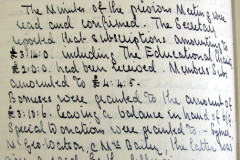 The Minutes of the previous Meeting were
read and confirmed. The Secretary
reported that subscriptions amounting to
£3:14:0. including The Educational
£2:0:0. had been received. Members Subs
amounted to £4:4:5.
were granted to the amount of
£3:13:6. leaving a balance in hand of
Special Donations were granted to :-
Mr Geo. Watson, & Mrs the latter was